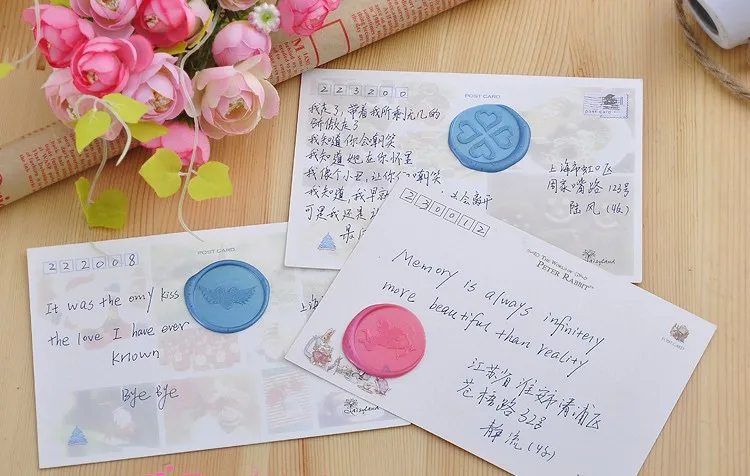 223200
POST CARD
我走了，带着我所剩无几的
骄傲走了
我知道你会嘲笑
我知道她在你怀里
我像个小丑，让你们嘲笑
我知道，我早就
会离开
可是我还是
上海市虹口区
周家嘴路123号
陆风(收)
Daisyland
POST CARD
222008
It was the only kiss
the love I have ever
known
Bye Bye
上海
Daisyland
230012
THE WORLD OF
PETER RABBIT
POST CARD
Memory is always infinitely
more beautiful than reality
江苏省淮安市清浦区
苍梧路32号
静流(收)